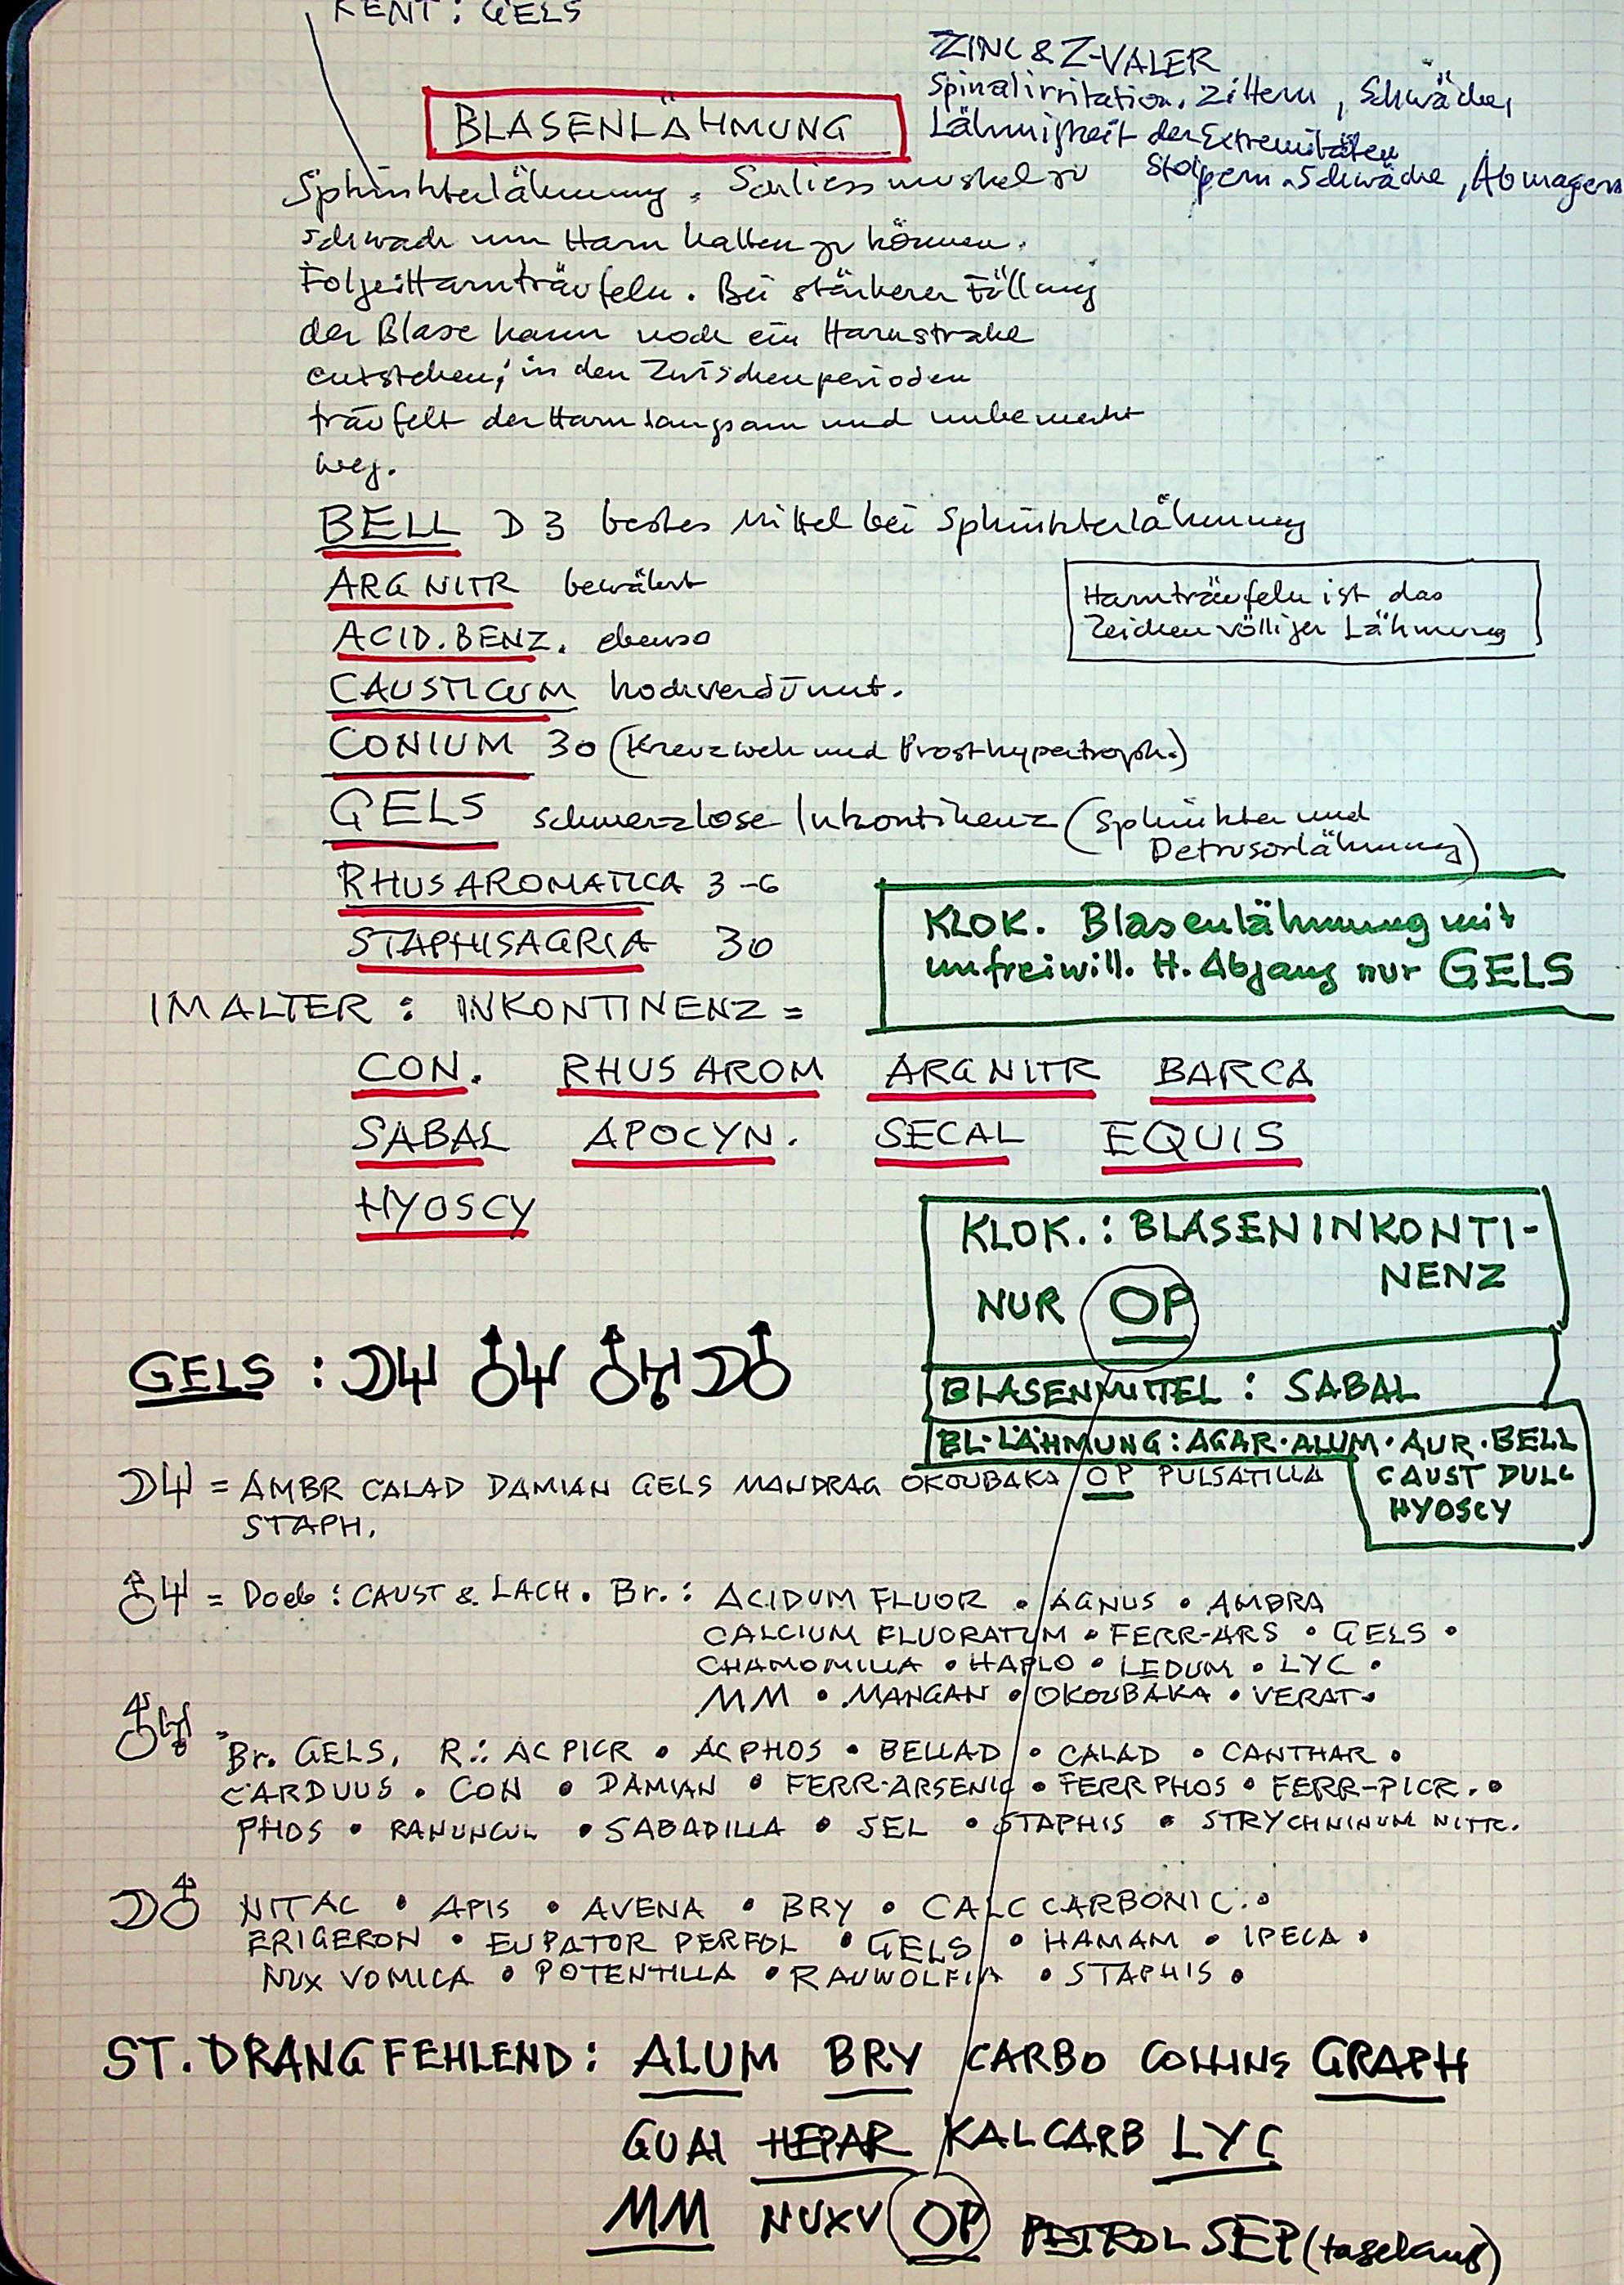 KENT: GELS
ZINC & Z-VALER
Spinalirritation. Zittern, Schwäche,
Lähmigkeit der Extremitäten
Stolpern. Schwäche, Abmagern
BLASENLÄHMUNG
Sphinkterlähmung. Schliessmuskel zu
schwach um Harn halten zu können.
Folge: Harnträufeln. Bei stärkerer Füllung
der Blase kann noch ein Harnstrahl
entstehen; in den Zwischenperioden
träufelt der Harn langsam und unbemerkt
weg.
BELL D 3 bestes Mittel bei Sphinkterlähmung
ARG NITR bewährt
ACID. BENZ. ebenso
Harnträufeln ist das
Zeichen völliger Lähmung
CAUSTICUM hochverdünnt.
CONIUM 30 (Kreuzweh und Prosthypertroph.)
GELS schmerzlose Inkontinenz (Sphinkter und
Detrusorlähmung)
RHUS AROMATICA 3-6
STAPHISAGRIA 30
KLOK. Blasenlähmung mit
unfreiwill. H. Abgang nur GELS
IM ALTER: INKONTINENZ =
CON. RHUS AROM ARG NITR BARCA
SABAL APOCYN. SECAL EQUIS
HYOSCY
KLOK.: BLASENINKONTI-
NENZ
NUR OP
BLASENMITTEL: SABAL
BL.LÄHMUNG: AGAR·ALUM·AUR·BELL
CAUST DULC
HYOSCY
GELS: ☽♆ ♂♆ ♂♅ ☽♂
☽♆ = AMBR CALAD DAMIAN GELS MANDRAG OKOUBAKA OP PULSATILLA
STAPH.
♂♆ = Doeb: CAUST & LACH. Br.: ACIDUM FLUOR • AGNUS • AMBRA
CALCIUM FLUORATUM • FERR-ARS • GELS •
CHAMOMILLA • HAPLO • LEDUM • LYC •
MM • MANGAN • OKOUBAKA • VERAT •
♂♅ = Br. GELS. R.: AC PICR • AC PHOS • BELLAD • CALAD • CANTHAR •
CARDUUS • CON • DAMIAN • FERR-ARSENIC • FERR PHOS • FERR-PICR. •
PHOS • RANUNCUL • SABADILLA • SEL • STAPHIS • STRYCHNINUM NITR.
☽♂ NIT AC • APIS • AVENA • BRY • CALC CARBONIC. •
ERIGERON • EUPATOR PERFOL • GELS • HAMAM • IPECA •
NUX VOMICA • POTENTILLA • RAUWOLFIA • STAPHIS •
ST. DRANG FEHLEND: ALUM BRY CARBO COLLINS GRAPH
GUAI HEPAR KALCARB LYC
MM NUXV OP PETROL SEP (tagelang)